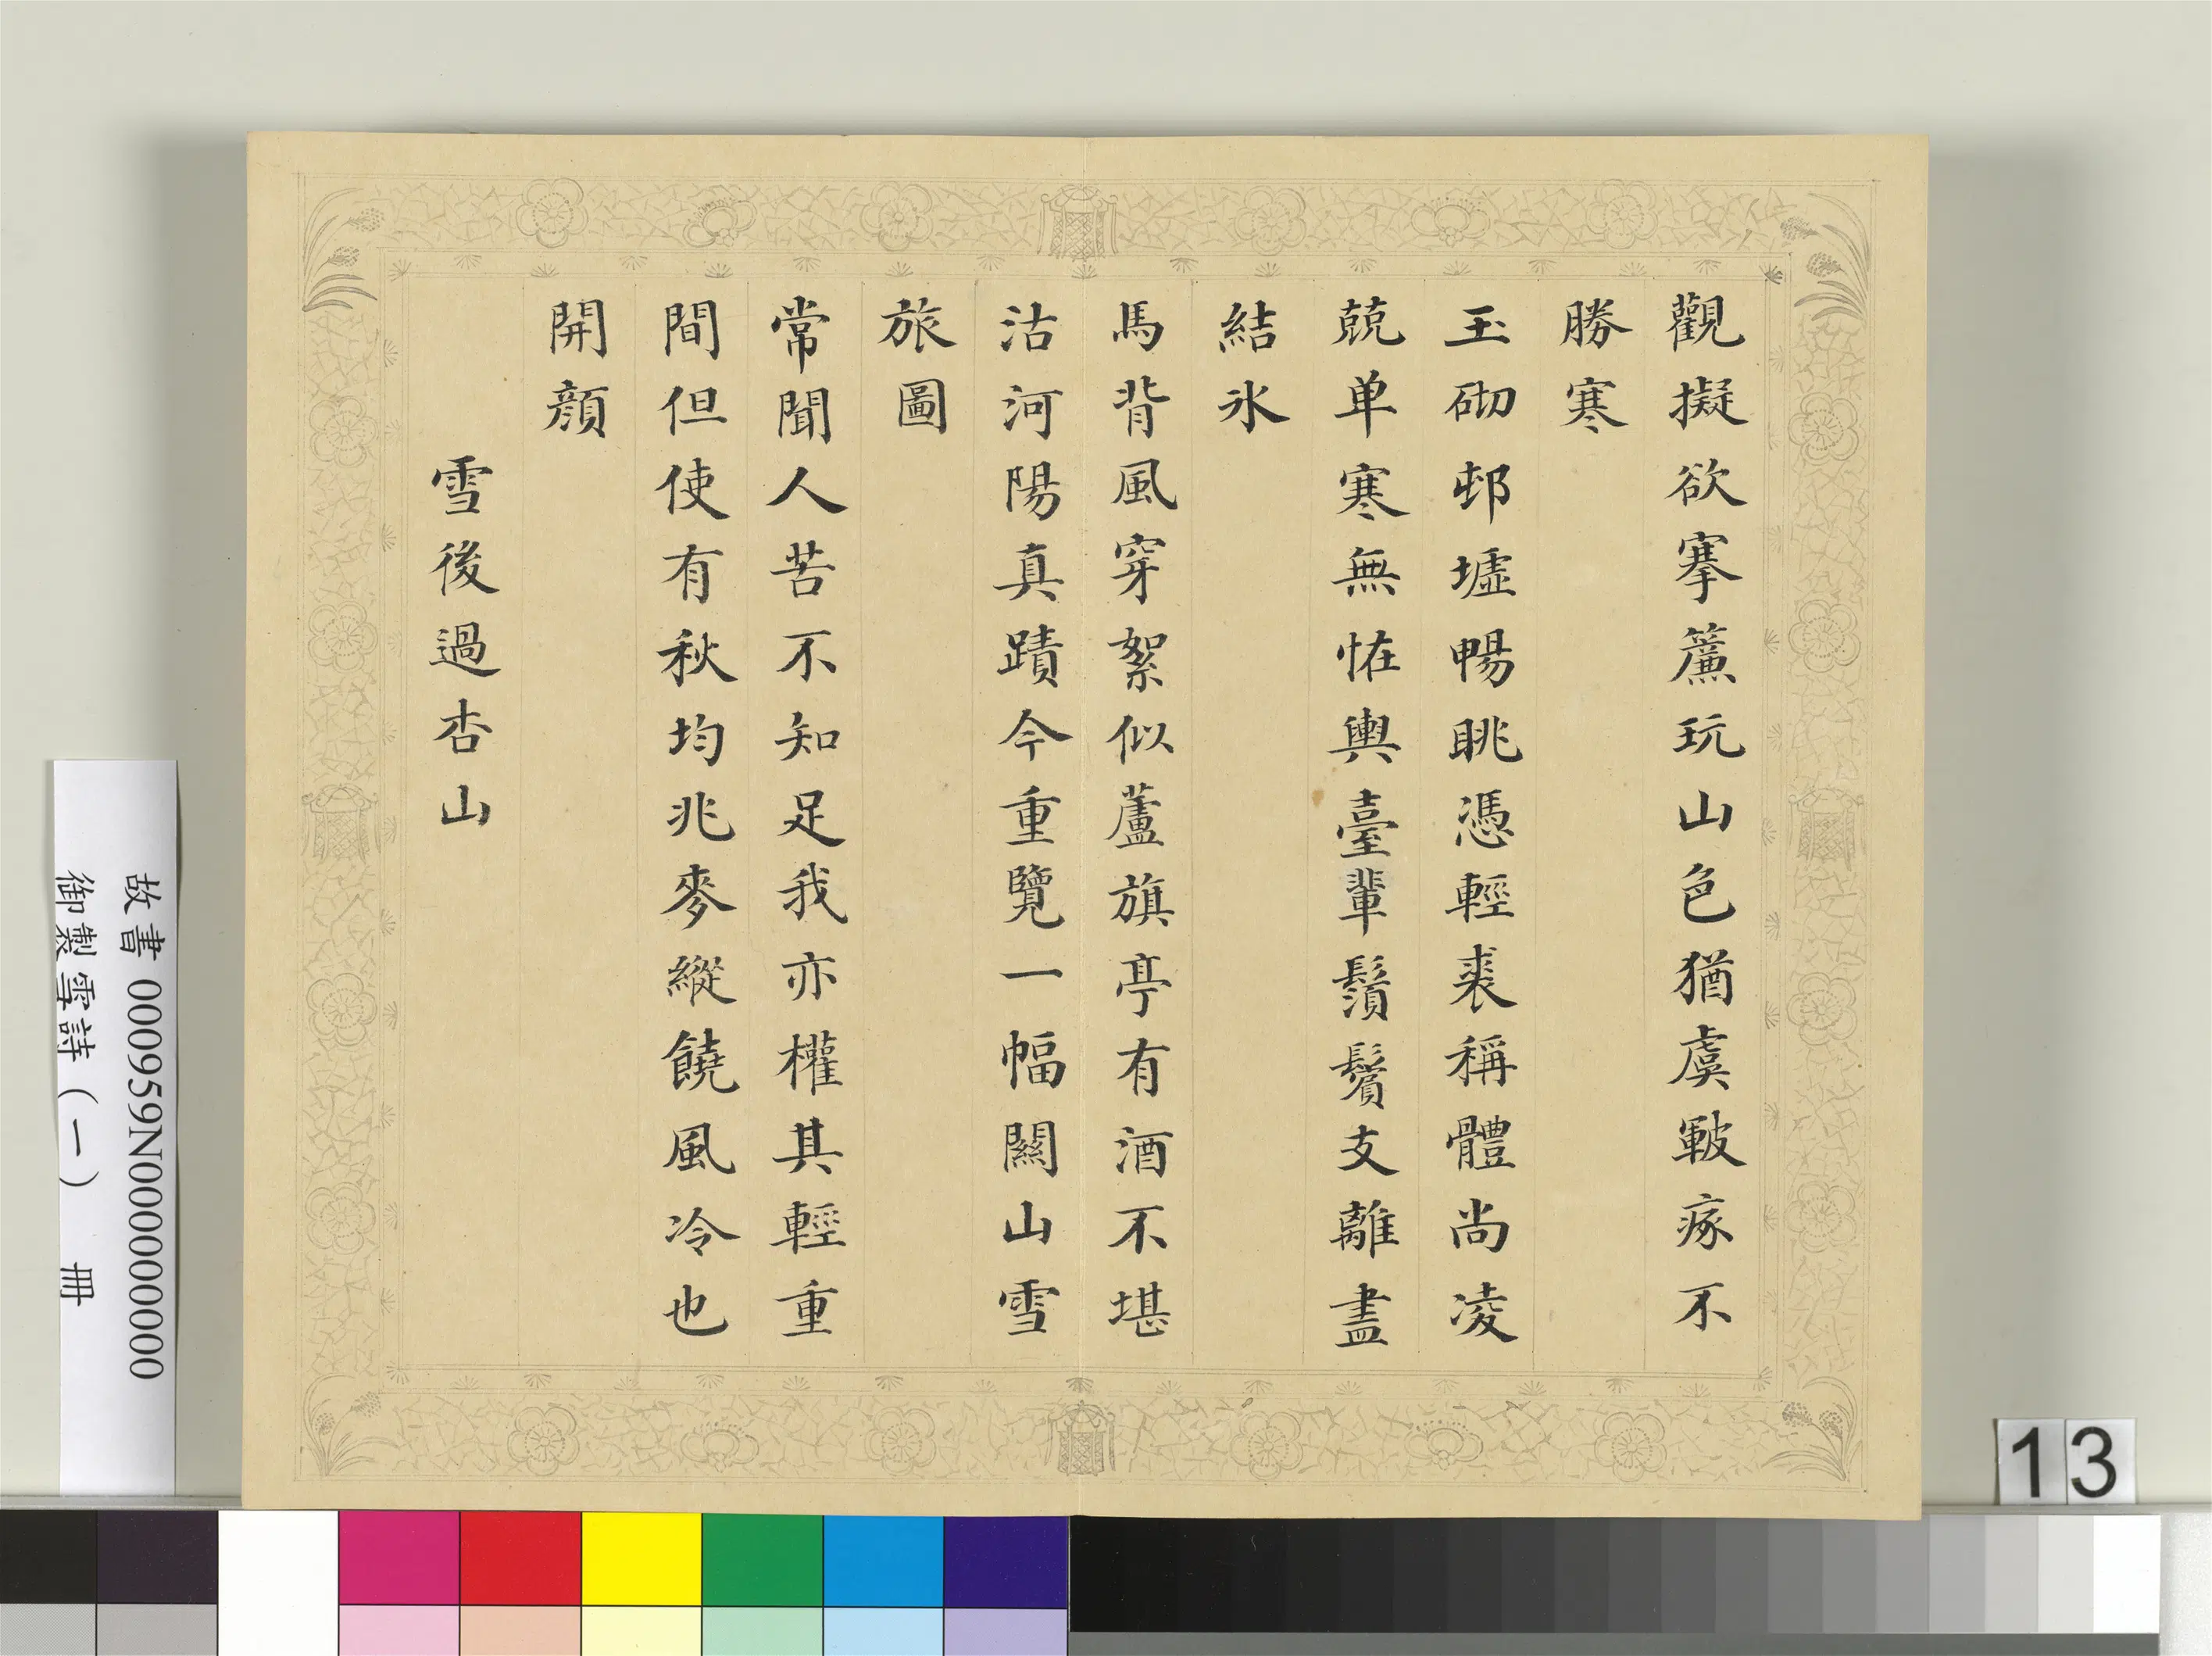 觀擬欲搴簾玩山色猶虞皸瘃不
勝寒
玉砌邨墟暢眺憑輕裘稱體尚凌
兢单寒無恠輿臺輩鬚鬢支離盡
結氷
馬背風穿絮似蘆旗亭有酒不堪
沽河陽真蹟今重覽一幅關山雪
旅圖
常聞人苦不知足我亦權其輕重
間但使有秋均兆麥縱饒風冷也
開顏
雪後過杏山
故書 000959N000000000
御製雪詩（一） 冊
13